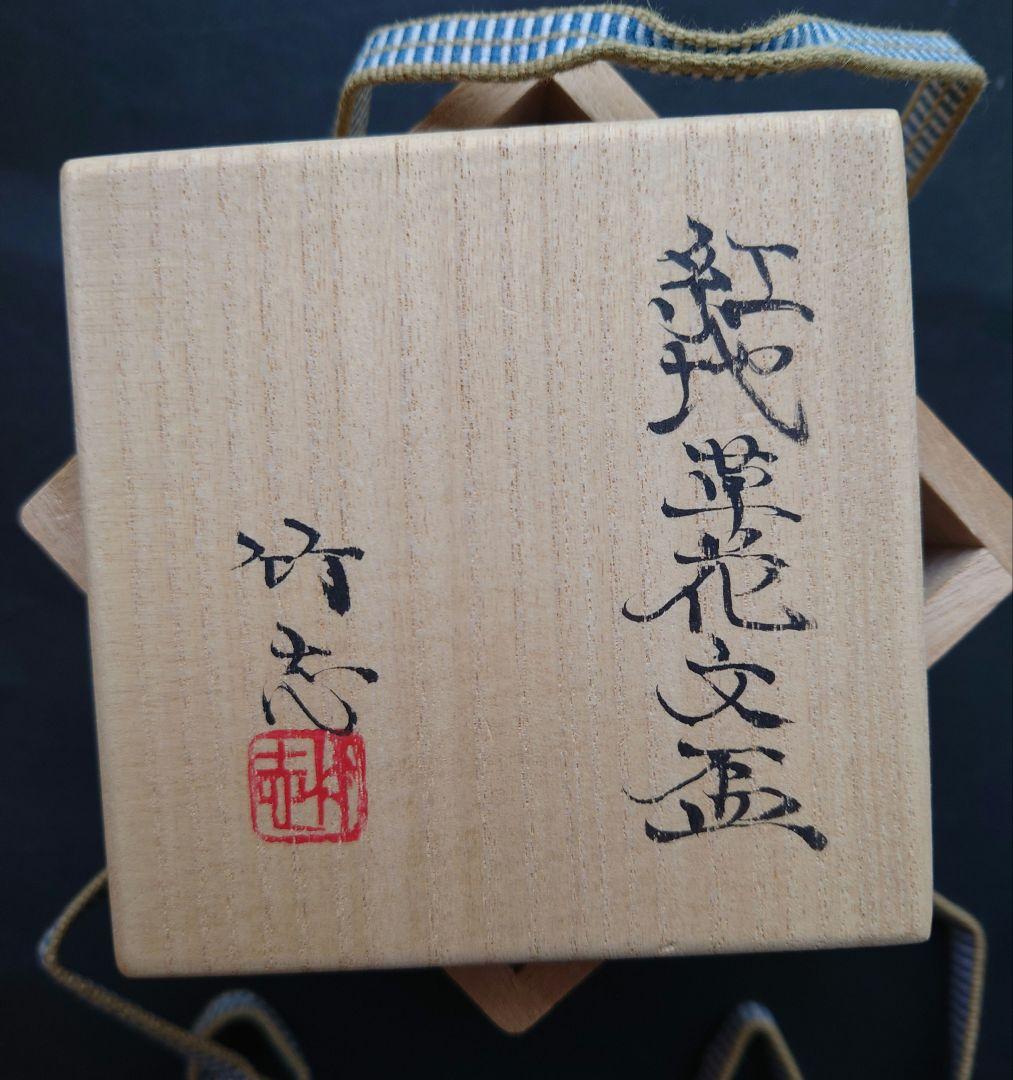 紅地草花文盃
竹志